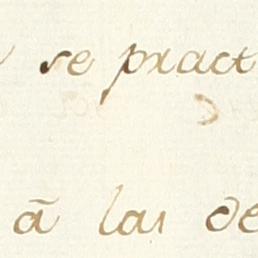 se pract
ã las de